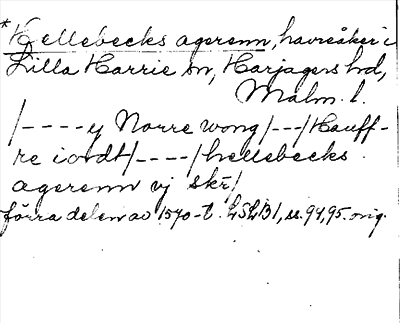 *Hellebecks agerenn, havreåker i
Lilla Harrie sn, Harjagers hd,
Malm. l.
/----y Norre wong/---/Hauff-
re iordt/----/hellebecks
agerenn vj skr̄/
förra delen av 1570-t. LSLB1, ss. 94, 95. orig.